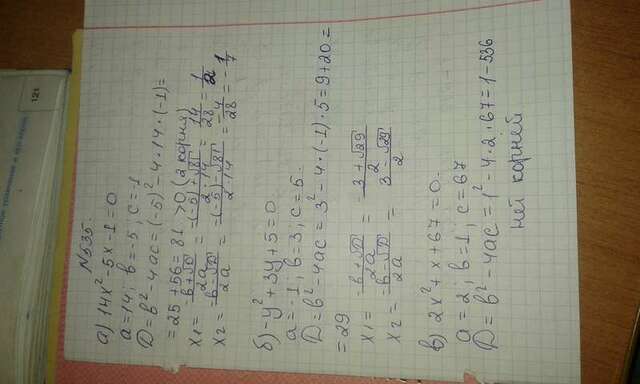 N535.
а) 14x² - 5x - 1 = 0
a = 14; b = -5; c = -1
D = b² - 4ac = (-5)² - 4·14·(-1) =
= 25 + 56 = 81 > 0 (2 корня)
x₁ = (-b+√D)/2a = (-(-5)+√81)/(2·14) = 14/28 = 1/2
x₂ = (-b-√D)/2a = (-(-5)-√81)/(2·14) = -4/28 = -1/7
б) -y² + 3y + 5 = 0
a = -1; b = 3; c = 5.
D = b² - 4ac = 3² - 4·(-1)·5 = 9 + 20 =
= 29
x₁ = (-b+√D)/2a = (3+√29)/2
x₂ = (-b-√D)/2a = (3-√29)/2
в) 2x² + x + 67 = 0.
a = 2; b = 1; c = 67
D = b² - 4ac = 1² - 4·2·67 = 1 - 536
нет корней
121